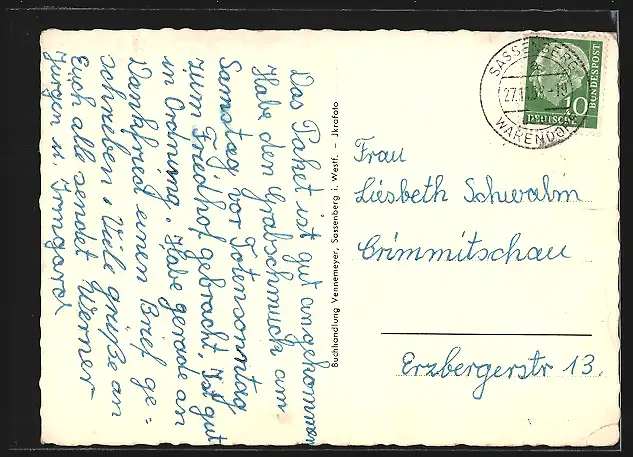 Das Paket ist gut angekommen
Habe den Grabschmuck am
Samstag vor Totensonntag
zum Friedhof gebracht. Ist gut
in Ordnung. Habe gerade an
Dankfried einen Brief ge=
schrieben. Viele Grüße an
Euch alle sendet Werner
Jürgen u. Irmgard
Buchhandlung Vennemeyer, Sassenberg i. Westf. - Jkrafoto
SASSENBERG
WARENDORF
10
DEUTSCHE
BUNDESPOST
Frau
Liesbeth Schwalm
Crimmitschau
Erzbergerstr 13.